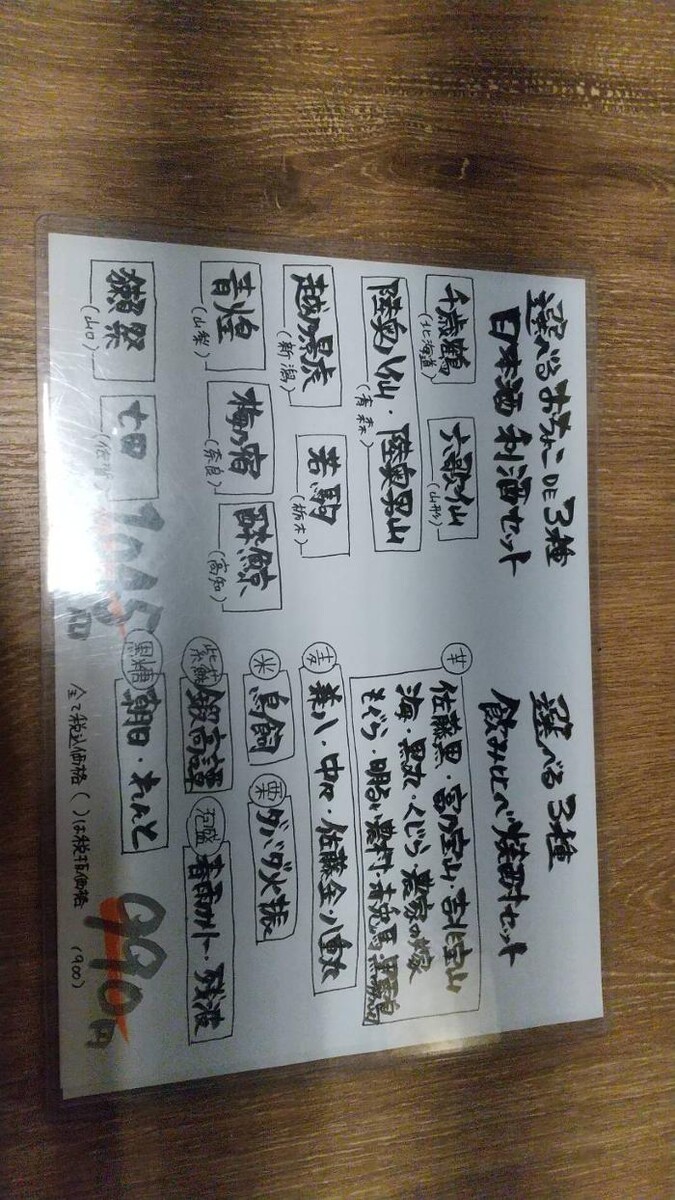 選べるおちょこDE3種
日本酒 利酒セット
千歳鶴
(北海道)
六歌仙
(山形)
陸奥八仙・陸奥男山
(青森)
越乃景虎
(新潟)
若駒
(栃木)
青煌
(山梨)
梅乃宿
(奈良)
酔鯨
(高知)
獺祭
(山口)
七田
1045円
選べる3種
飲み比べ焼酎セット
芋
佐藤黒・富乃宝山・吉兆宝山
海・黒丸・くじら・農家の嫁
もぐら・明るい農村・赤兎馬・黒霧島
麦
兼八・中々・佐藤金・八重丸
米
鳥飼
栗
ダバダ火振
紫蘇
鍛高譚
泡盛
春雨カリー・残波
黒糖
朝日・れんと
990円
(900)
全て税込価格 ( )は税抜価格